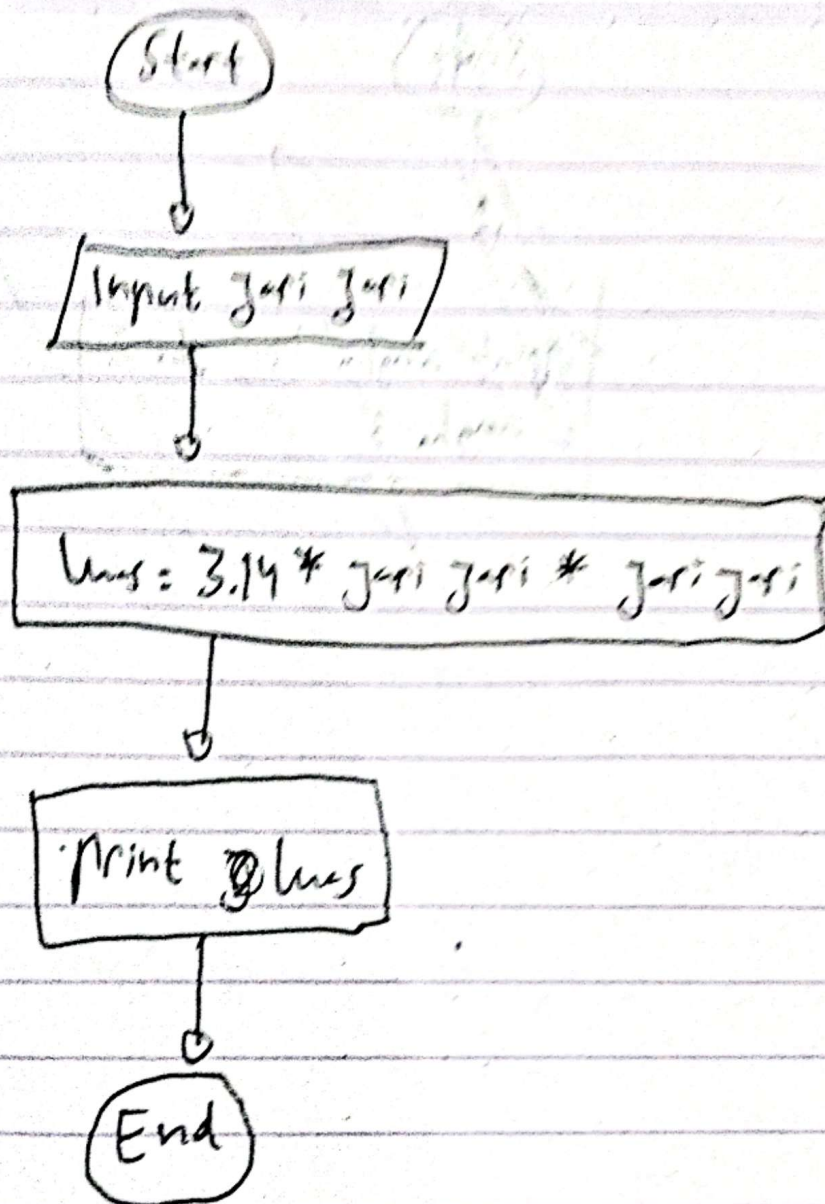 Start
Input jari jari
luas = 3.14 * jari jari * jari jari
print luas
End